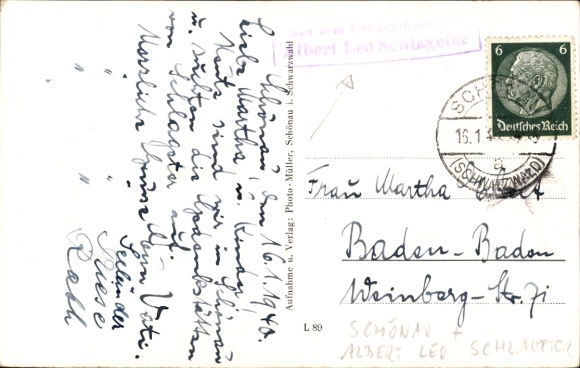 Schönau den 16.1.1940.
Liebe Martha u. Kinder!
Heute sind wir in Schönau
u. suchten die Gedenkstätten
von Schlageter auf.
Herzliche Grüsse Dein Vati.
" " Seeländer
" " Riese
" " Rath
Aufnahme u. Verlag: Photo-Müller, Schönau i. Schwarzwald
L 89
Aus dem
Albert Leo Schlageter
6 6
Deutsches Reich
SCHÖNAU
16.1.
a
(SCHWARZWALD)
Frau Martha
Baden-Baden
Weinberg-Str. 71
SCHÖNAU +
ALBERT LEO SCHLAGETER